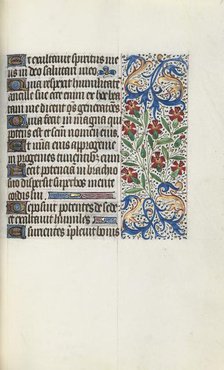 Et exaltavit spiritus me
us in deo salutari meo
Quia respexit humilitatē
ancille sue ecce enim ex hoc bea
tam me dicent oēs generatiōes
Quia fecit michi magna qui
potens est et sctm nomen eius
Et mīa eius a progenie
in progenies timentibus eum
Fecit potentiā in brachio
suo dispersit superbos mente
cordis sui
Deposuit potentes de sede
et exaltavit humiles
Esurientes īplevit bonis